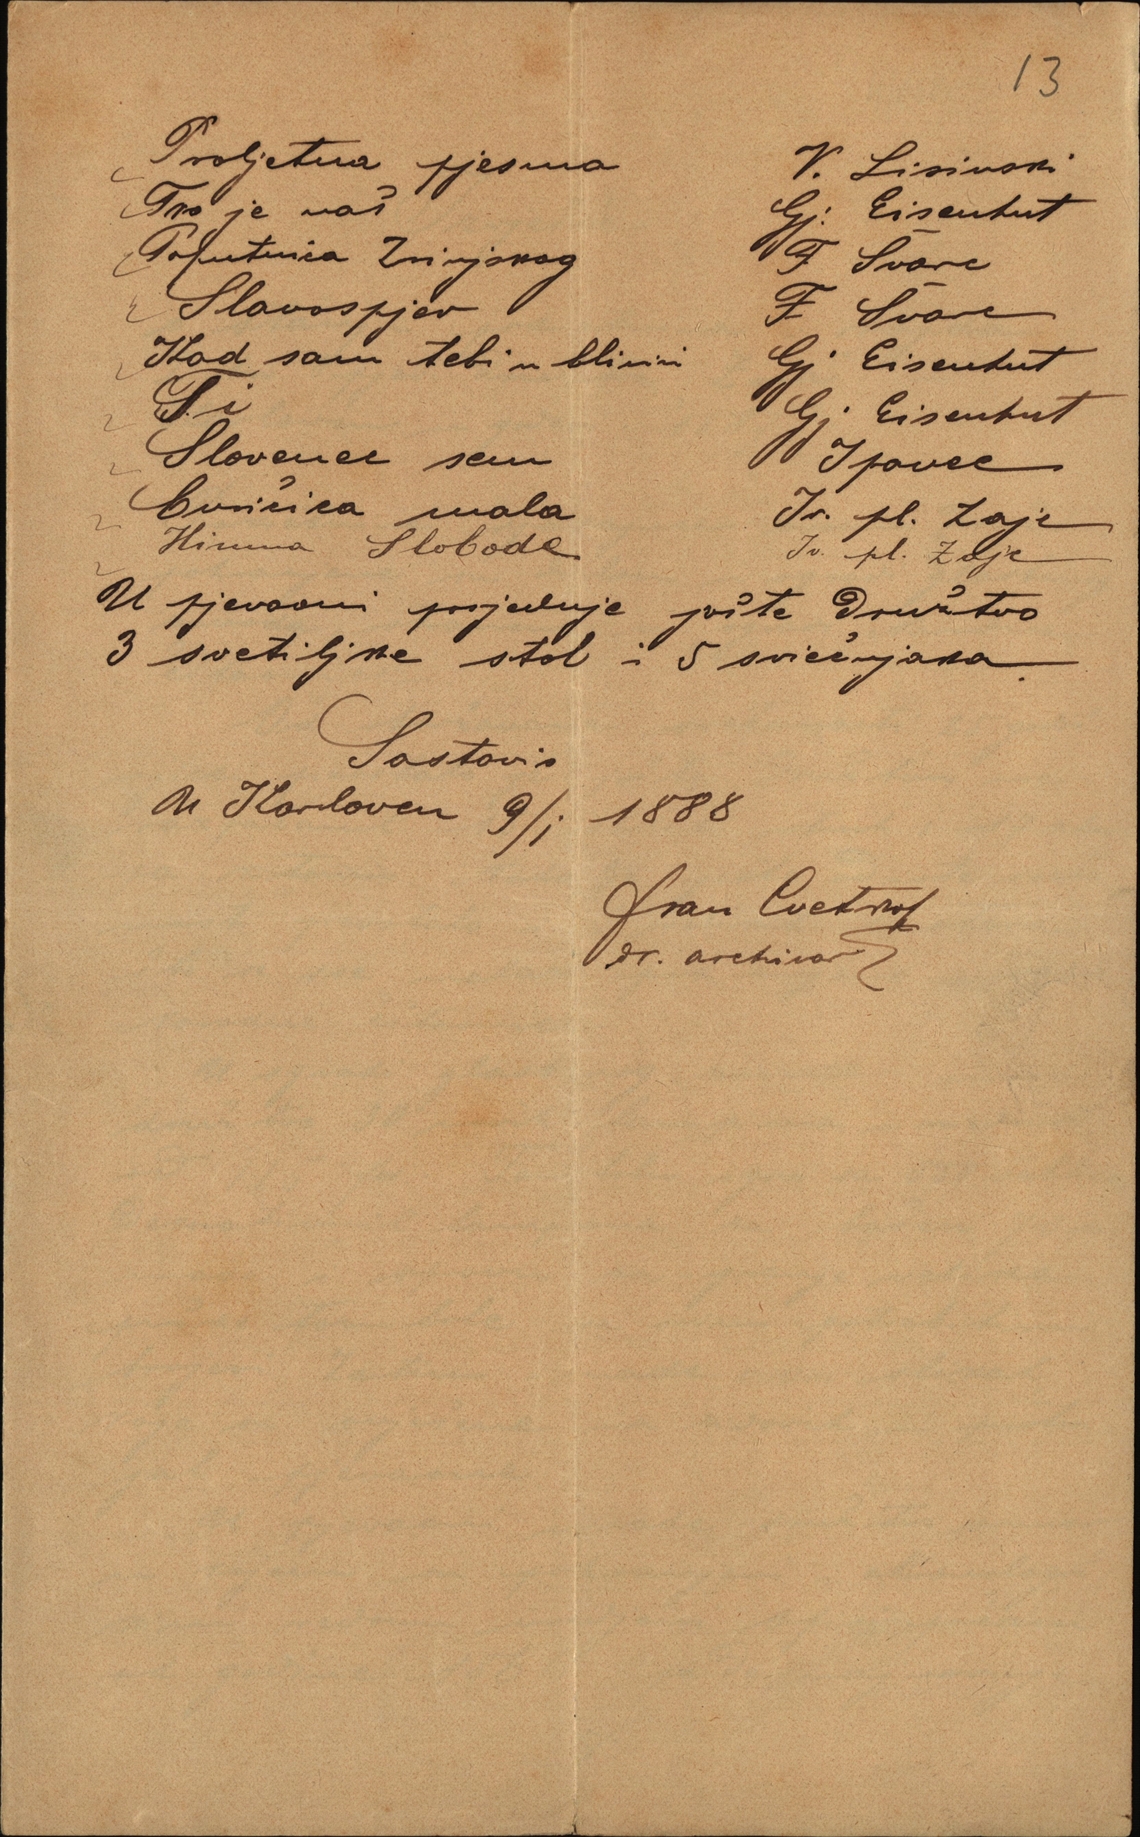 13
Proljetna pjesma V. Lisinski
Tko je naš Gj. Eisenhut
Poputnica Zrinjskog F Švarc
Slavospjev F. Švarc
Kad sam tebi u blizini Gj Eisenhut
Ti Gj. Eisenhut
Slovenec sem Ipavec
mala Iv. pl. Zajc
Himna Slobode Iv. pl. Zajc
U pjevaoni posjeduje jošte Družtvo
3 svetiljke stol i 5 sviećnjaka.
Sastavio
U Karlovcu 9/1 1888
Fran Cvetko
dr. arhivar